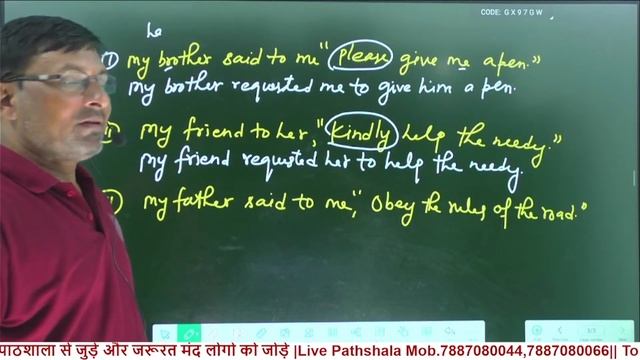 CODE: GX97GW
he
① my brother said to me "please give me a pen."
my brother requested me to give him a pen.
my friend to her, "Kindly help the needy."
my friend requested her to help the needy.
my father said to me, "Obey the rules of the road."
पाठशाला से जुड़े और जरूरत मंद लोगो को जोड़े |Live Pathshala Mob.7887080044,7887080066|| To